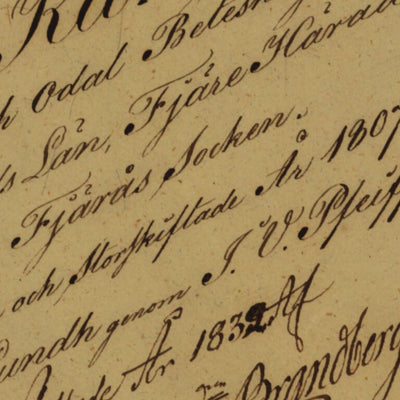 Odal Betes
s Län, Fjäre Härad
Fjärås Socken.
och Storskiftade År 1807
Lundh genom J. V. Pfeiff
År 1832 Af
Brandberg